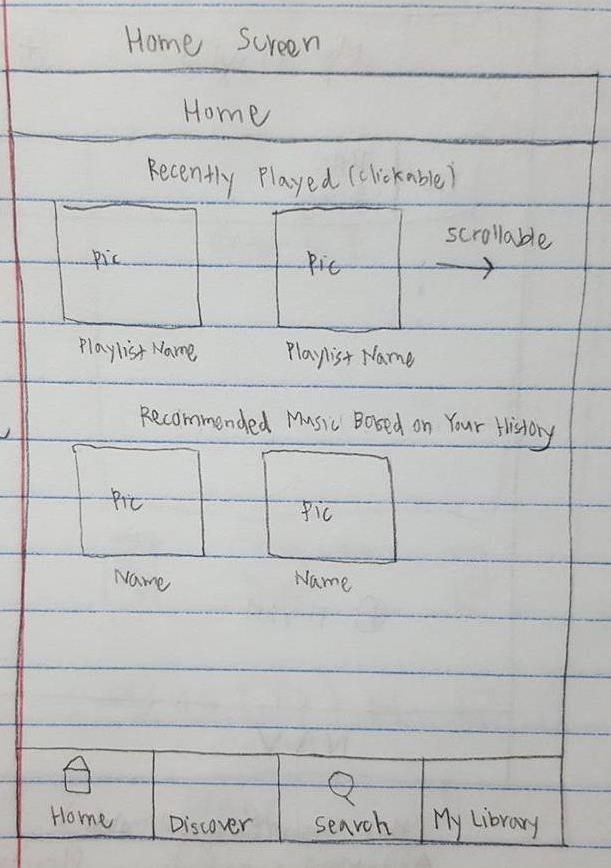 Home Screen
Home
Recently Played (clickable)
scrollable
Pic Pic
Playlist Name Playlist Name
Recommended Music Based on Your History
Pic Pic
Name Name
Home Discover Search My Library